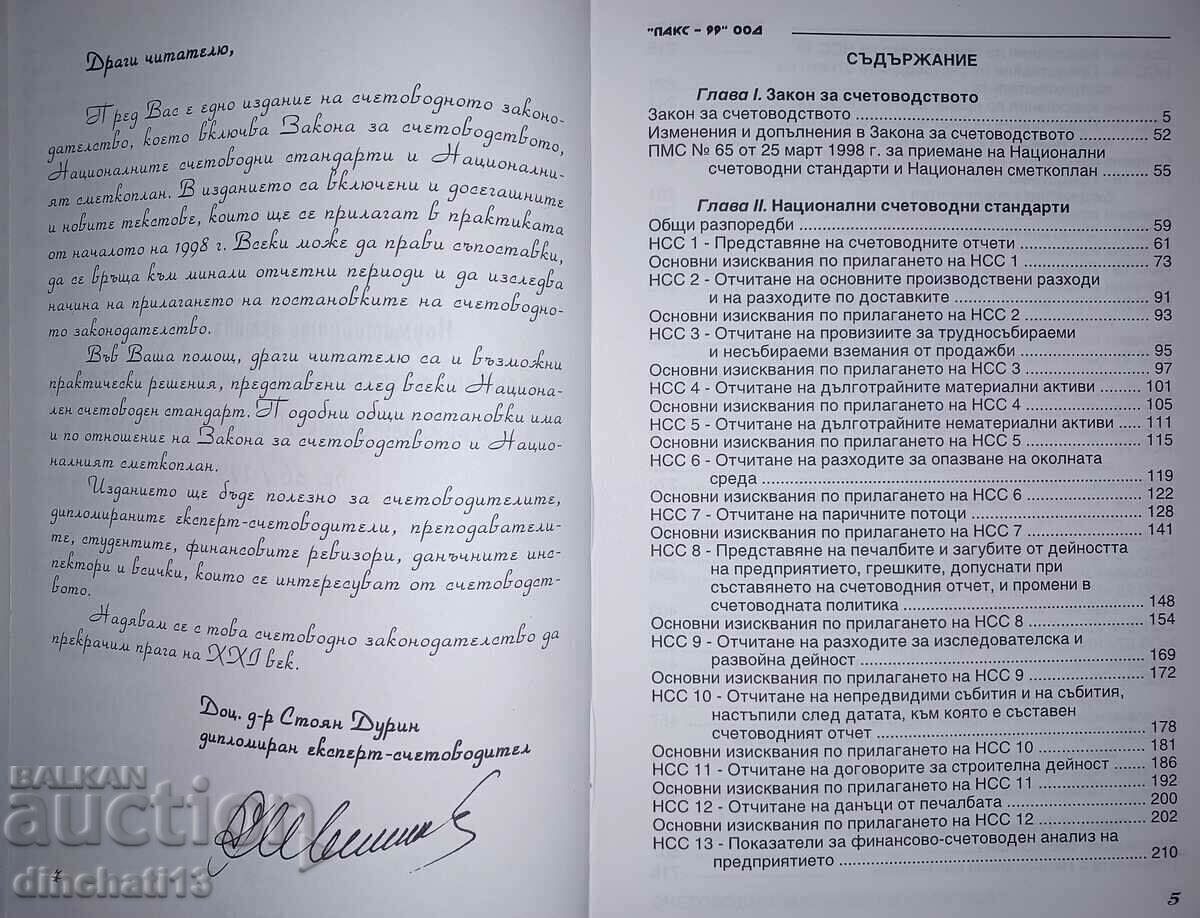 Драги читателю,
Пред Вас е едно издание на счетоводното законо-
дателство, което включва Закона за счетоводството,
Националните счетоводни стандарти и Национални-
ят сметкоплан. В изданието са включени и досегашните
и новите текстове, които ще се прилагат в практиката
от началото на 1998 г. Всеки може да прави съпоставки,
да се връща към минали отчетни периоди и да изследва
начина на прилагането на постановките на счетоводно-
то законодателство.
Във Ваша помощ, драги читателю са и възможни
практически решения, представени след всеки Национа-
лен счетоводен стандарт. Подобни общи постановки има
и по отношение на Закона за счетоводството и Нацио-
налният сметкоплан.
Изданието ще бъде полезно за счетоводителите,
дипломираните експерт-счетоводители, преподаватели-
те, студентите, финансовите ревизори, данъчните инс-
пектори и всички, които се интересуват от счетоводст-
вото.
Надявам се с това счетоводно законодателство да
прекрачим прага на XXI век.
Доц. д-р Стоян Дурин
дипломиран експерт-счетоводител
BALKAN
auction
dinchati13
4
"ПАКС - 99" ООД
СЪДЪРЖАНИЕ
Глава I. Закон за счетоводството
Закон за счетоводството ..... 5
Изменения и допълнения в Закона за счетоводството ..... 52
ПМС № 65 от 25 март 1998 г. за приемане на Национални
счетоводни стандарти и Национален сметкоплан ..... 55
Глава II. Национални счетоводни стандарти
Общи разпоредби ..... 59
НСС 1 - Представяне на счетоводните отчети ..... 61
Основни изисквания по прилагането на НСС 1 ..... 73
НСС 2 - Отчитане на основните производствени разходи
и на разходите по доставките ..... 91
Основни изисквания по прилагането на НСС 2 ..... 93
НСС 3 - Отчитане на провизиите за трудносъбираеми
и несъбираеми вземания от продажби ..... 95
Основни изисквания по прилагането на НСС 3 ..... 97
НСС 4 - Отчитане на дълготрайните материални активи ..... 101
Основни изисквания по прилагането на НСС 4 ..... 105
НСС 5 - Отчитане на дълготрайните нематериални активи ..... 111
Основни изисквания по прилагането на НСС 5 ..... 115
НСС 6 - Отчитане на разходите за опазване на околната
среда ..... 119
Основни изисквания по прилагането на НСС 6 ..... 122
НСС 7 - Отчитане на паричните потоци ..... 128
Основни изисквания по прилагането на НСС 7 ..... 141
НСС 8 - Представяне на печалбите и загубите от дейността
на предприятието, грешките, допуснати при
съставянето на счетоводния отчет, и промени в
счетоводната политика ..... 148
Основни изисквания по прилагането на НСС 8 ..... 154
НСС 9 - Отчитане на разходите за изследователска и
развойна дейност ..... 169
Основни изисквания по прилагането на НСС 9 ..... 172
НСС 10 - Отчитане на непредвидими събития и на събития,
настъпили след датата, към която е съставен
счетоводният отчет ..... 178
Основни изисквания по прилагането на НСС 10 ..... 181
НСС 11 - Отчитане на договорите за строителна дейност ..... 186
Основни изисквания по прилагането на НСС 11 ..... 192
НСС 12 - Отчитане на данъци от печалбата ..... 200
Основни изисквания по прилагането на НСС 12 ..... 202
НСС 13 - Показатели за финансово-счетоводен анализ на
предприятието ..... 210
5